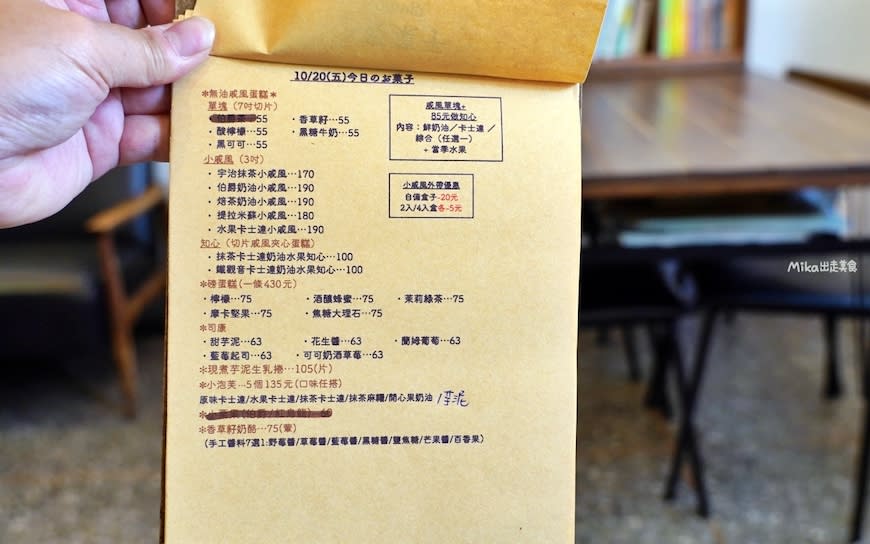 10/20(五)今日のお菓子
＊無油戚風蛋糕＊
單塊（7吋切片）
・伯爵茶…55 ・香草籽…55
・酸檸檬…55 ・黑糖牛奶…55
・黑可可…55
戚風單塊+
85元做知心
內容：鮮奶油／卡士達／
綜合（任選一）
+ 當季水果
小戚風（3吋）
・宇治抹茶小戚風…170
・伯爵奶油小戚風…190
・焙茶奶油小戚風…190
・提拉米蘇小戚風…180
・水果卡士達小戚風…190
小戚風外帶優惠
自備盒子-20元
2入/4入盒各-5元
知心（切片戚風夾心蛋糕）
・抹茶卡士達奶油水果知心…100
・鐵觀音卡士達奶油水果知心…100
＊磅蛋糕(一條430元)
・檸檬…75 ・酒釀蜂蜜…75 ・茉莉綠茶…75
・摩卡堅果…75 ・焦糖大理石…75
＊司康
・甜芋泥…63 ・花生醬…63 ・蘭姆葡萄…63
・藍莓起司…63 ・可可奶酒草莓…63
＊現煮芋泥生乳捲…105(片)
＊小泡芙…5個135元(口味任搭)
原味卡士達/水果卡士達/抹茶卡士達/抹茶麻糬/開心果奶油 /芋泥
(伯爵/紅烏龍) 60
＊香草籽奶酪…75(葷)
(手工醬料7選1:野莓醬/草莓醬/藍莓醬/黑糖醬/鹽焦糖/芒果醬/百香果)
Mika出走美食